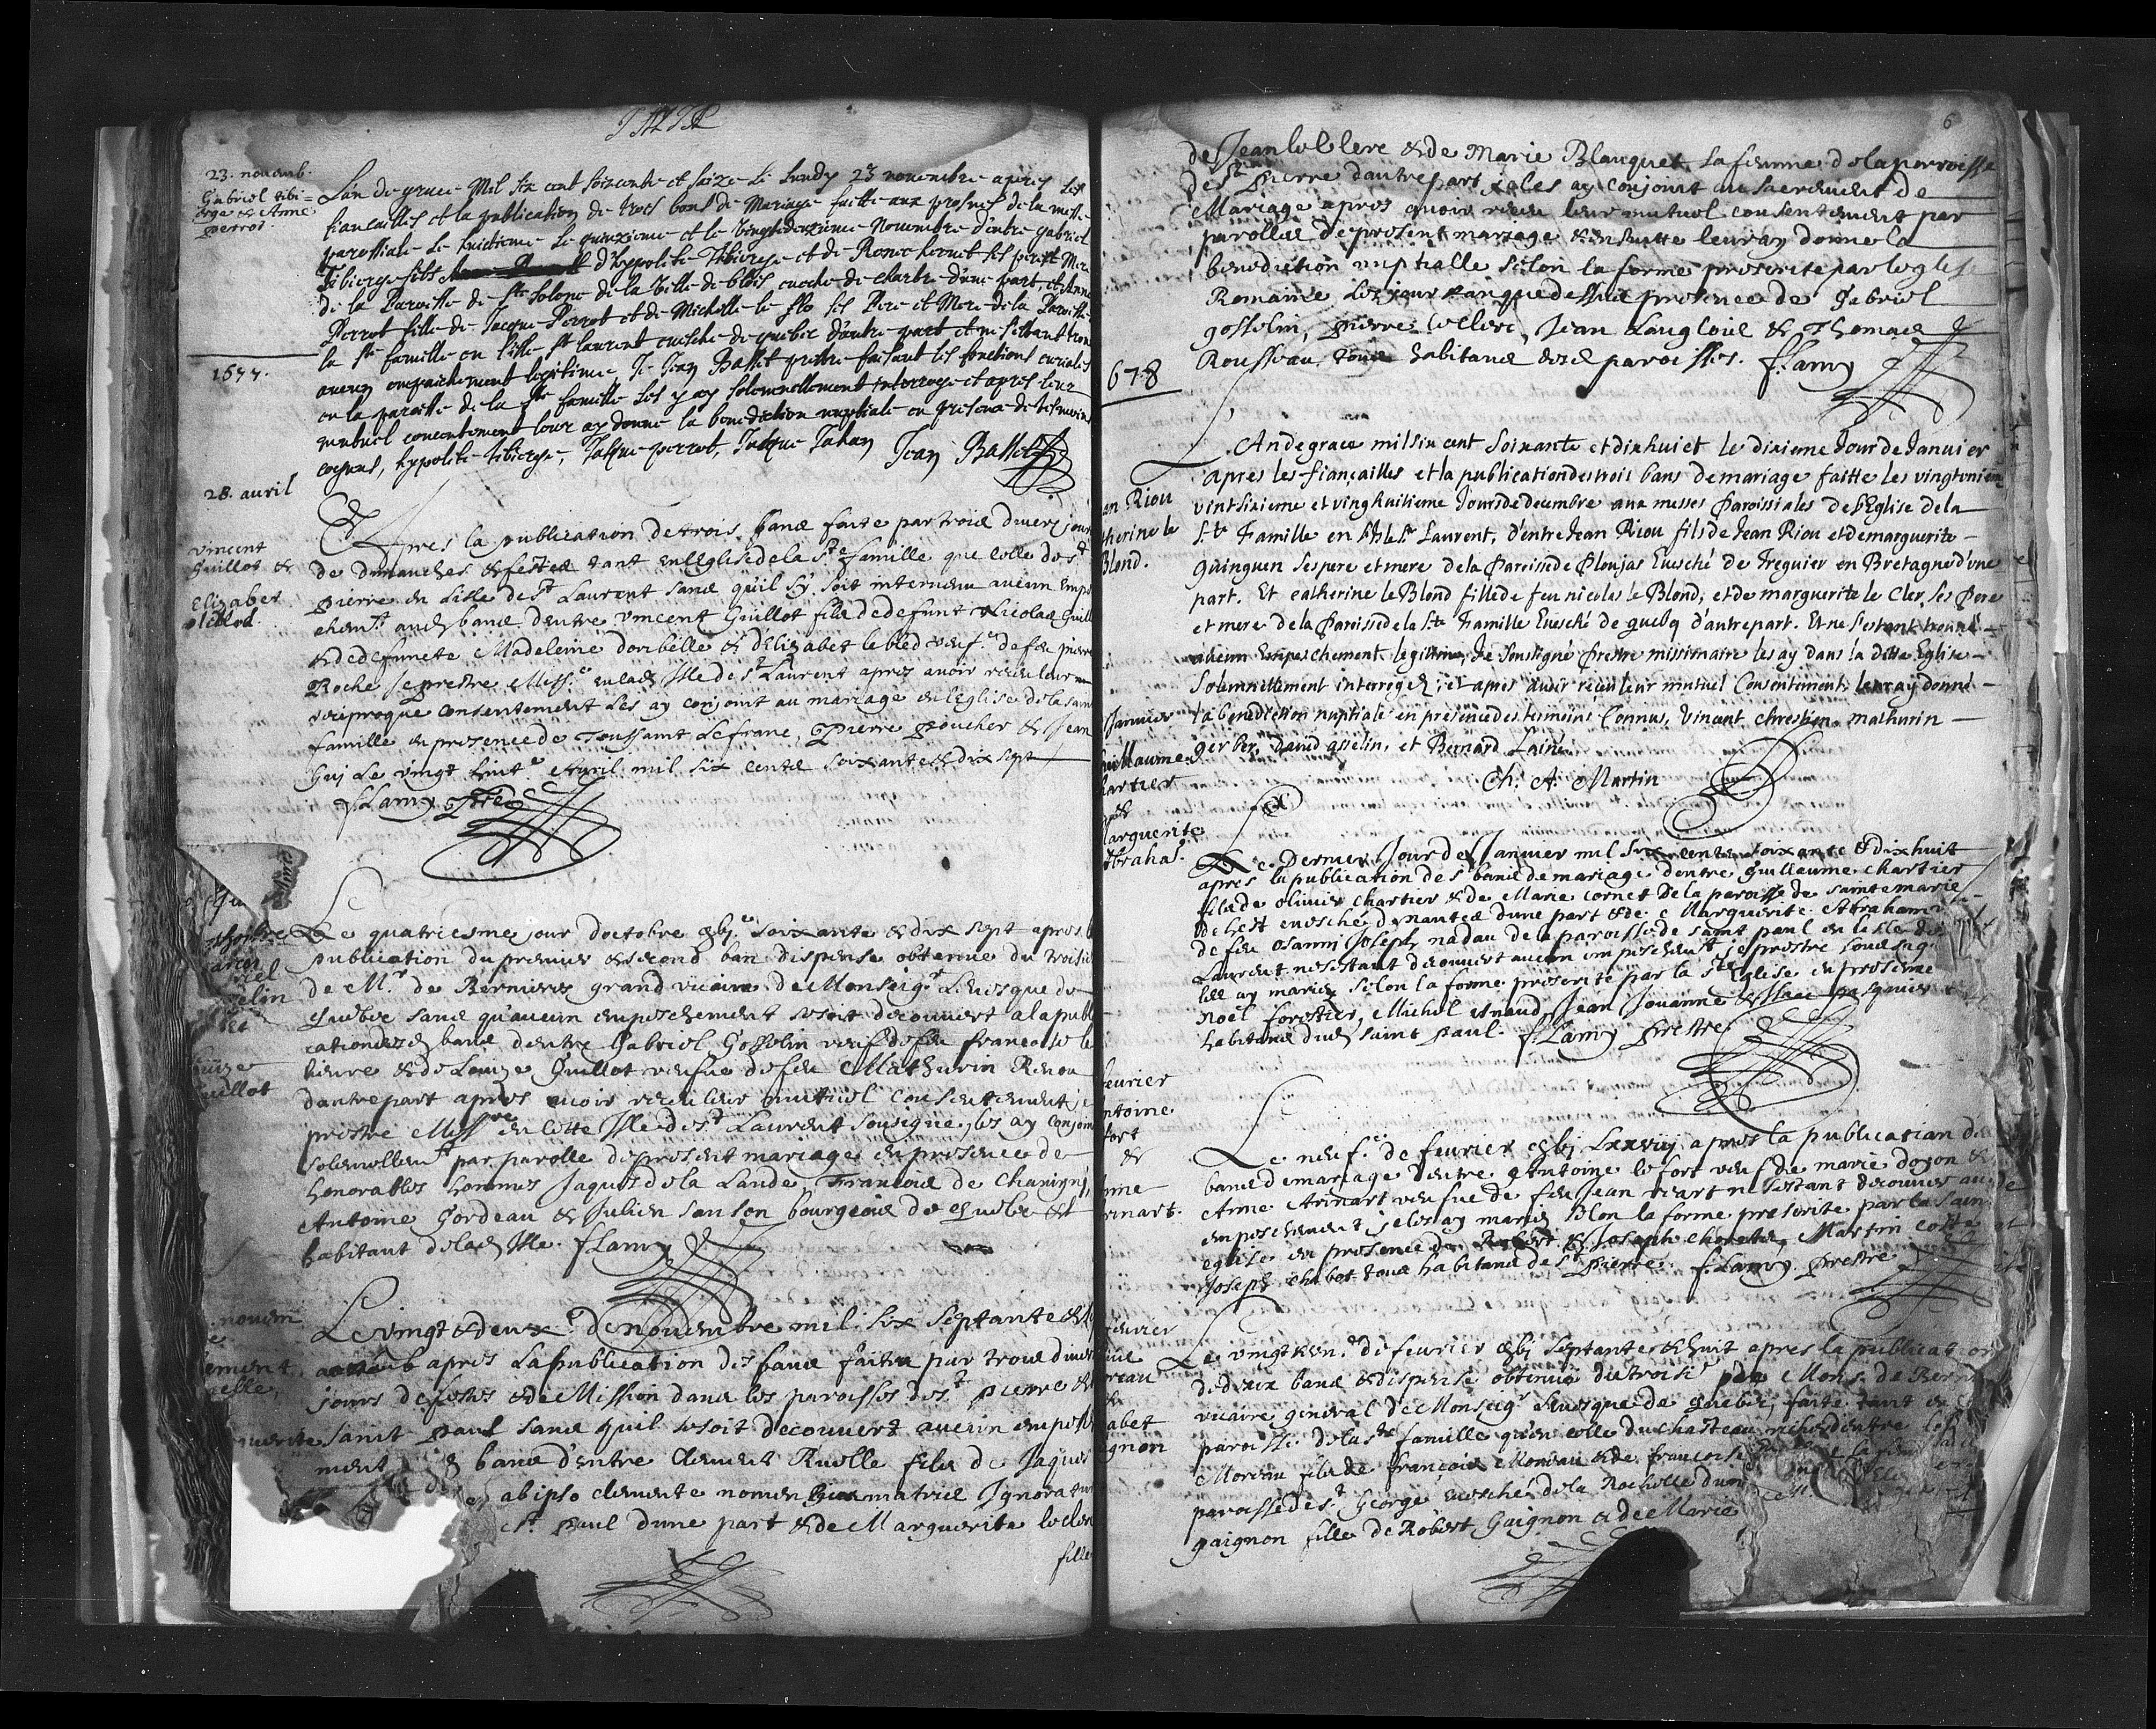 23. novemb.
Gabriel tibi=
erge & Anne
perrot.
L'an de grace Mil six cent soixante et saize le lundy 23 novembre apres les
fiancailles et la publication de trois bans de Mariage faitte aux prosnes de la messe
paroissiale le huictieme le quinzieme et le vingtdeuxieme Novembre d'entre gabriel
Tibierge fils d'hypolite Tibierge et de Renee hervet ses pere et Mere
de la Paroisse de Ste Solene de la Ville de blois evesche de chartre d'une part, et Anne
Perrot fille de Jacque Perrot et de Michelle le flo ses Pere et Mere de la Paroisse
la ste famille en l'isle st laurent evesche de quebec d'autre part et ne s'estant trouve
aucun empaichement legitime Je Jean Basset prestre faisant les fonctions curiales
en la paroisse de la ste famille les y ay solemnellement interroge et apres leur
mutuel consentement leur ay donne la benediction nuptiale en presence de tesmoins
cogneus, hypolite tibierge, Jacque perrot, Jacque Jahan Jean Basset
1677.
28. avril
Vincent
Guillot &
Elizabet
le bled.
Apres la publication de trois bans faite par trois divers jours
de dimanches & festes tant en l'Eglise de la Ste famille que celle de st
pierre en lisle de St Laurent sans qu'il sy soit intervenu aucun empe
chemt aud bans dentre vincent Guillot fils de defunt Nicolas Guill
& de defuncte Madeleine doribelle & d'Elizabet le bled veufe de feu pierre
Roche je prestre Misse en lad Isle de st Laurent apres avoir receu leur
reciproque consentement les ay conjoint au mariage en l'Eglise de la sain
famille en presence de Toussaint Lefranc, Pierre Foucher & Jean
Guy Le vingt huite Avril mil six cents soixante & dix sept
f. Lamy Pre
Le quatriesme jour d'octobre gbje soixante & dix sept apres l
publication du premier & second ban dispense obtenue du troisie
de Mr de Bernieres grand vicaire de Monseigr L'evesque de
Quebec sans qu'aucun empeschement se soit decouvert a la publi
cation desd bans dentre Gabriel Gosselin veuf de feu francoise le
lievre & de Louize Guillot veufve de feu Mathurin Renou
dautre part apres avoir receu leur mutuel consentement je
prestre Missre en cette Isle de st Laurent sousigne, les ay conjoin
solemnellemt par parolle de present mariage en presence de
honorables hommes Jaques de la Lande, Francois de Chavigny,
Antoine Gordeau & Julien Sanson bourgeois de Quebec &
habitant de lad Isle. f Lamy
elin
et
Guillot
novem
Le vingt & deuxe de novembre mil six septante &
apres la publication des bans faitte par trois divers
jours de festes & de Mission dans les paroisses de st pierre &
saint paul sans quil se soit decouvert aucun empesche
ment bans d'entre Clement Ruelle fils de Jaques
ab ipso clemente nomen matris Ignoratur
st paul dune part & de Marguerite leclerc
fille
6
de Jean leClerc & de Marie Blanquet sa femme de la parroisse
de St Pierre dautre part & les ay conjoint au sacrement de
Mariage apres avoir receu leur mutuel consentement par
parolles de present mariage & ensuitte leur ay donne la
benediction nuptialle selon la forme prescrite par leglis
Romaine les jour & an que dessus presence de Gabriel
gosselin, pierre leclerc, Jean Langlois & Thomas
Rousseau tous habitans desd paroisses. f. Lamy
678
an Riou
therine le
Blond.
L'An de grace mil six cent soixante et dix huict le dixieme Jour de Janvier
apres les fiançailles et la publication des trois bans de mariage faitte les vingtunieme
vintsixieme et vinghuitieme Jours de decembre aux messes Paroissiales de l'Eglise de la
Ste Famille en l'Isle St Laurent, d'entre Jean Riou fils de Jean Riou et de marguerite
Guinguen ses pere et mere de la Paroisse de Ploujas Evesché de Treguier en Bretagne d'une
part. Et catherine le Blond fille de feu nicolas le Blond, et de marguerite le Clerc ses Pere
et mere de la Paroisse de la Ste Famille Evesché de quebq d'autre part. Et ne s'estant trouvé
aucun Empeschement legitime, Je soussigné Prestre missionaire les ay dans la ditte Eglise
Solemnellement interrogez, et apres avoir receu leur mutuel Consentement leur ay donné
la benediction nuptiale en presence des temoins Connus, Vincent chrestien, mathurin
gerber, david asselin, et Bernard Lainé.
Ch. A. Martin
Janvier
uillaume
hartier
&
arguerite
Abraha.
Le Dernier Jour de Janvier mil six cents soixante & dix huit
apres la publication des bans de mariage dentre Guillaume chartier
fils de olivier chartier & de Marie cornet de la paroisse de sainte marie
evesché de nantes dune part & de Marguerite Abraham
de feu osanni Joseph nadau de la paroisse de saint paul en lisle de st
Laurent nestant decouvert aucun empeschemt je prestre sousigne
les ay mariez selon la forme prescrite par la Ste Eglise en presence
Noel forestier, Michel esnaud, Jean Jouanne & Isaac pasquier
habitans dud saint paul. f. Lamy prestre
fevrier
ntoine
fort
&
nne
rinart.
Le neufe de fevrier gbj Lxxviij apres la publication des
bans de mariage dentre Antoine lefort veuf de marie doyon &
Anne Arinart veufve de feu Jean nestant decouver au
empeschement je les ay mariez selon la forme prescrite par la sain
eglise en presence de Robert & Joseph choret, Martin cotte et
Joseph chabot tous habitans de st pierre. f. Lamy prestre
fevrier
reau
&
abet
agnon
Le vingt & une de fevrier gbj septante & huit apres la publication
de deux bans & dispense obtenue du troisi par Mons. de Berni
vicaire general de Monseigr Levesque de Quebec, faite tant en
paroisse de la ste famille qu'en celle du chasteau richer dentre
Moreau fils de francois Moreau & de francoise
paroisse de st George evesché de la Rochelle dune
gaignon fille de Robert Gaignon & de Marie